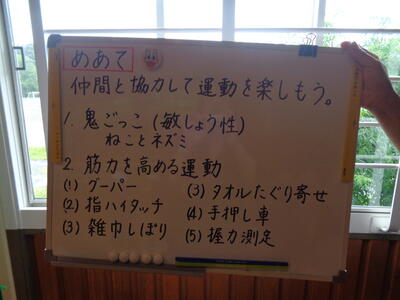 めあて
仲間と協力して運動を楽しもう。
1. 鬼ごっこ(敏しょう性)
ねことネズミ
2. 筋力を高める運動
(1) グーパー
(2) 指ハイタッチ
(3) 雑巾しぼり
(3) タオルたぐり寄せ
(4) 手押し車
(5) 握力測定